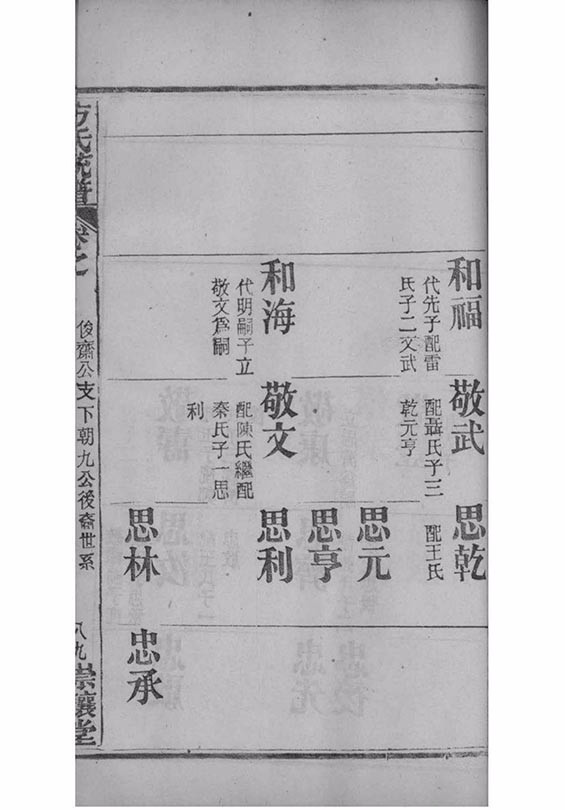 和福
代先子配雷
氏子二文武
敬武
配聶氏子三
乾元亨
思乾
配王氏
思元
思亨
和海
代明嗣子立
敬文爲嗣
敬文
配陳氏繼配
秦氏子一思
利
思利
思林
忠承
方氏統譜
卷之
俊齋公支下朝九公後裔世系
八九
崇讓堂